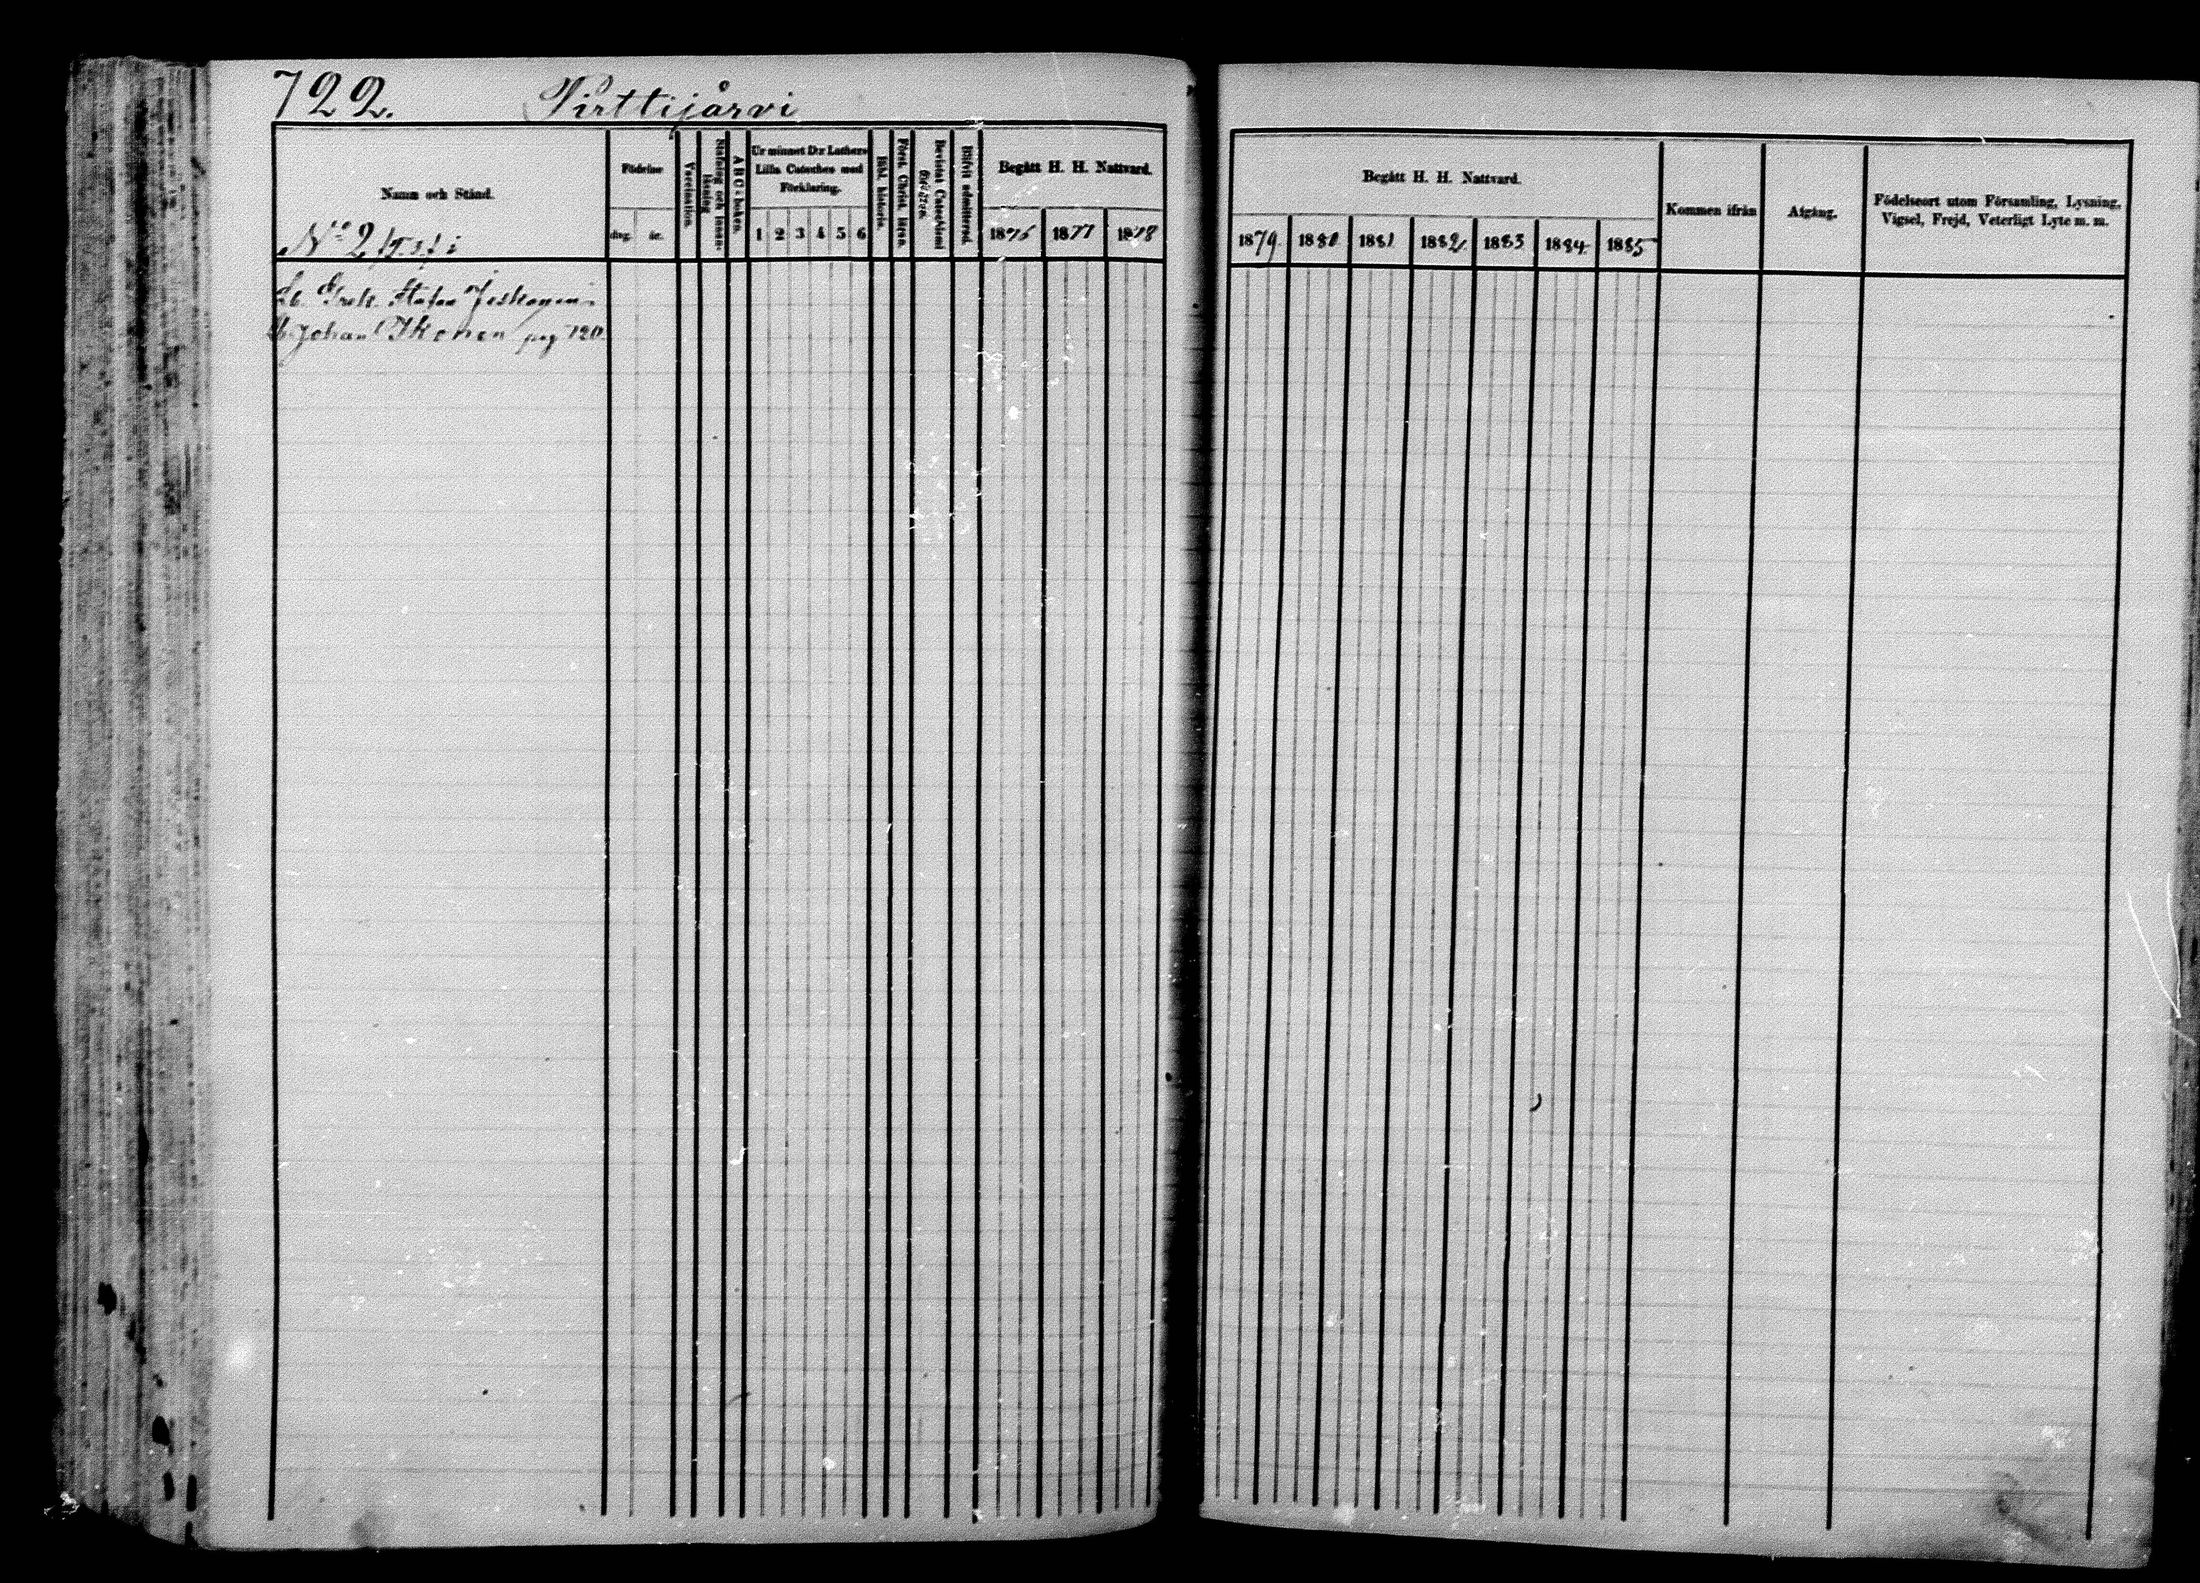 722. Pirttijärvi
Namn och Stånd.
No 2
Lb. Grek. Stefan
Lb. Johan Ikonen pag 720.
Födelse
dag. år.
Vaccination.
Stafning och innan-
läsning
A B C = boken.
Ur minnet D:r Luthers
Lilla Cateches med
Förklaring.
1 2 3 4 5 6
Bibl. historia.
Först. Christ. läran.
Bevistat Catechismi
Blifvit admitterad.
Begått H. H. Nattvard.
1876 1877 1878
Begått H. H. Nattvard.
1879. 1880. 1881. 1882. 1883 1884. 1885
Kommen ifrån
Afgång.
Födelseort utom Församling, Lysning,
Vigsel, Frejd, Veterligt Lyte m. m.